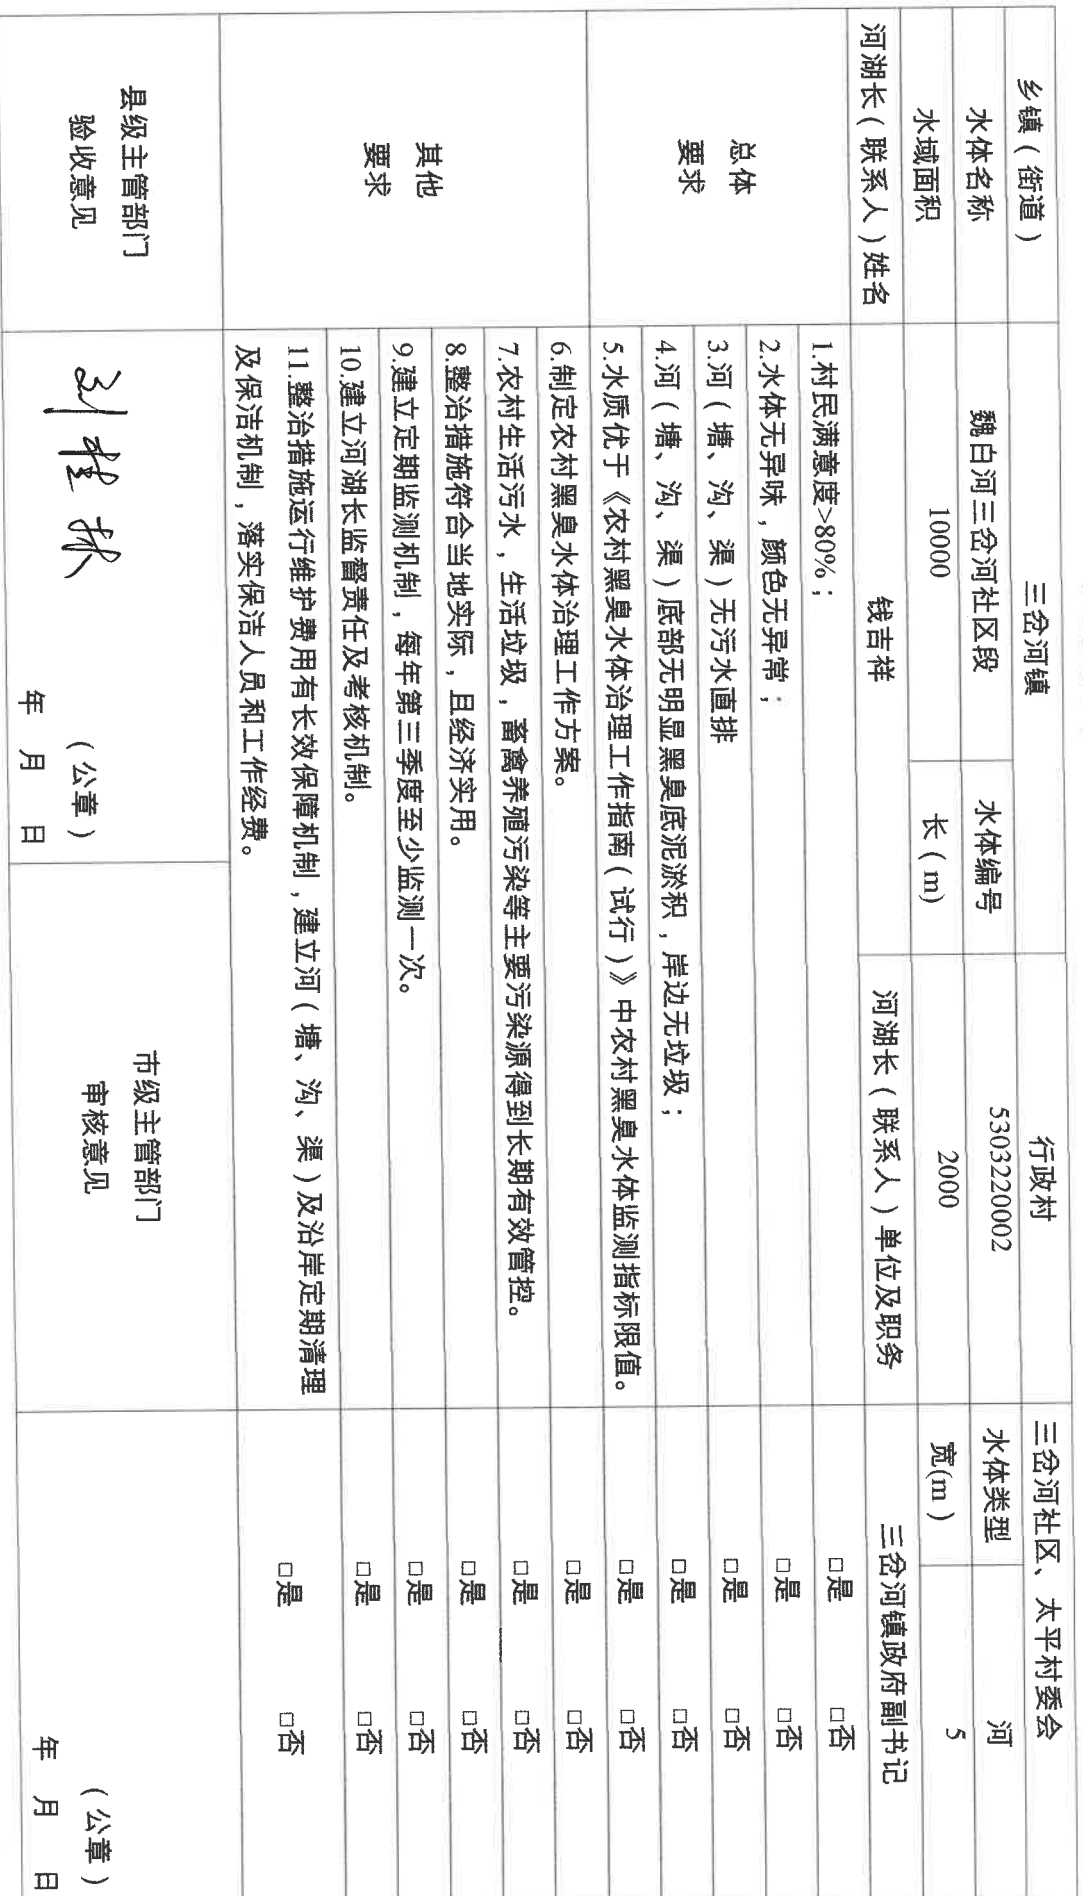 乡镇（街道） 三岔河镇 行政村 三岔河社区、太平村委会
水体名称 魏白河三岔河社区段 水体编号 5303220002 水体类型 河
水域面积 10000 长（m） 2000 宽(m） 5
河湖长（联系人）姓名 钱吉祥 河湖长（联系人）单位及职务 三岔河镇政府副书记
总体
要求
1.村民满意度>80%； □是 □否
2.水体无异味，颜色无异常； □是 □否
3.河（塘、沟、渠）无污水直排 □是 □否
4.河（塘、沟、渠）底部无明显黑臭底泥淤积，岸边无垃圾； □是 □否
5.水质优于《农村黑臭水体治理工作指南（试行）》中农村黑臭水体监测指标限值。 □是 □否
其他
要求
6.制定农村黑臭水体治理工作方案。 □是 □否
7.农村生活污水，生活垃圾，畜禽养殖污染等主要污染源得到长期有效管控。 □是 □否
8.整治措施符合当地实际，且经济实用。 □是 □否
9.建立定期监测机制，每年第三季度至少监测一次。 □是 □否
10.建立河湖长监督责任及考核机制。 □是 □否
11.整治措施运行维护费用有长效保障机制，建立河（塘、沟、渠）及沿岸定期清理
及保洁机制，落实保洁人员和工作经费。 □是 □否
县级主管部门
验收意见
（公章）
年 月 日
市级主管部门
审核意见
（公章）
年 月 日